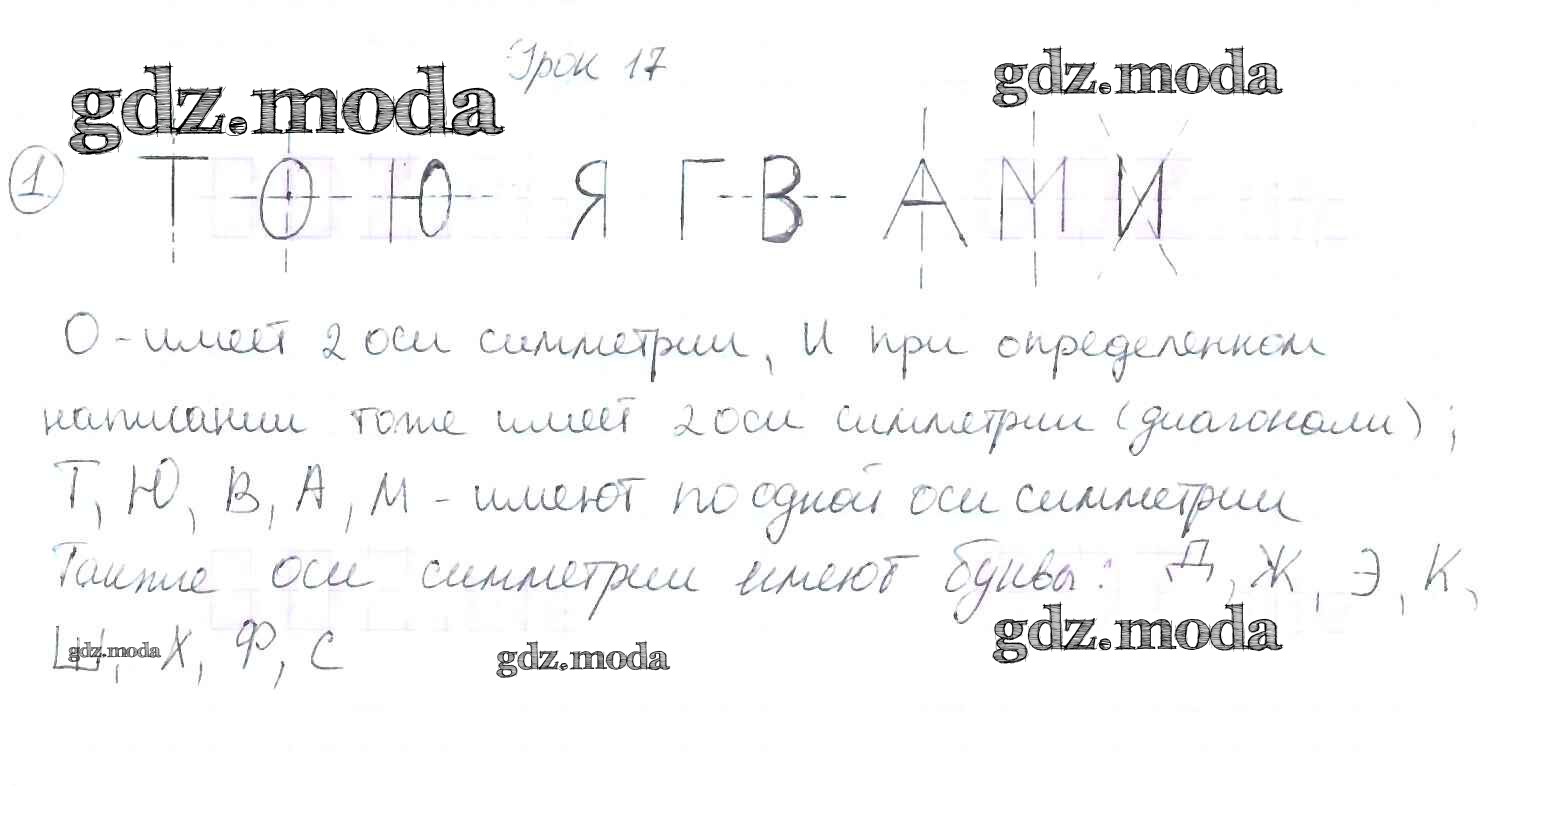 Урок 17
gdz.moda
gdz.moda
1 Т О Ю Я Г В А М И
О - имеет 2 оси симметрии, И при определенном
написании тоже имеет 2 оси симметрии (диагонали);
Т, Ю, В, А, М - имеют по одной оси симметрии
Также оси симметрии имеют буквы: Д, Ж, Э, К,
Ш, Х, Ф, С
gdz.moda
gdz.moda
gdz.moda